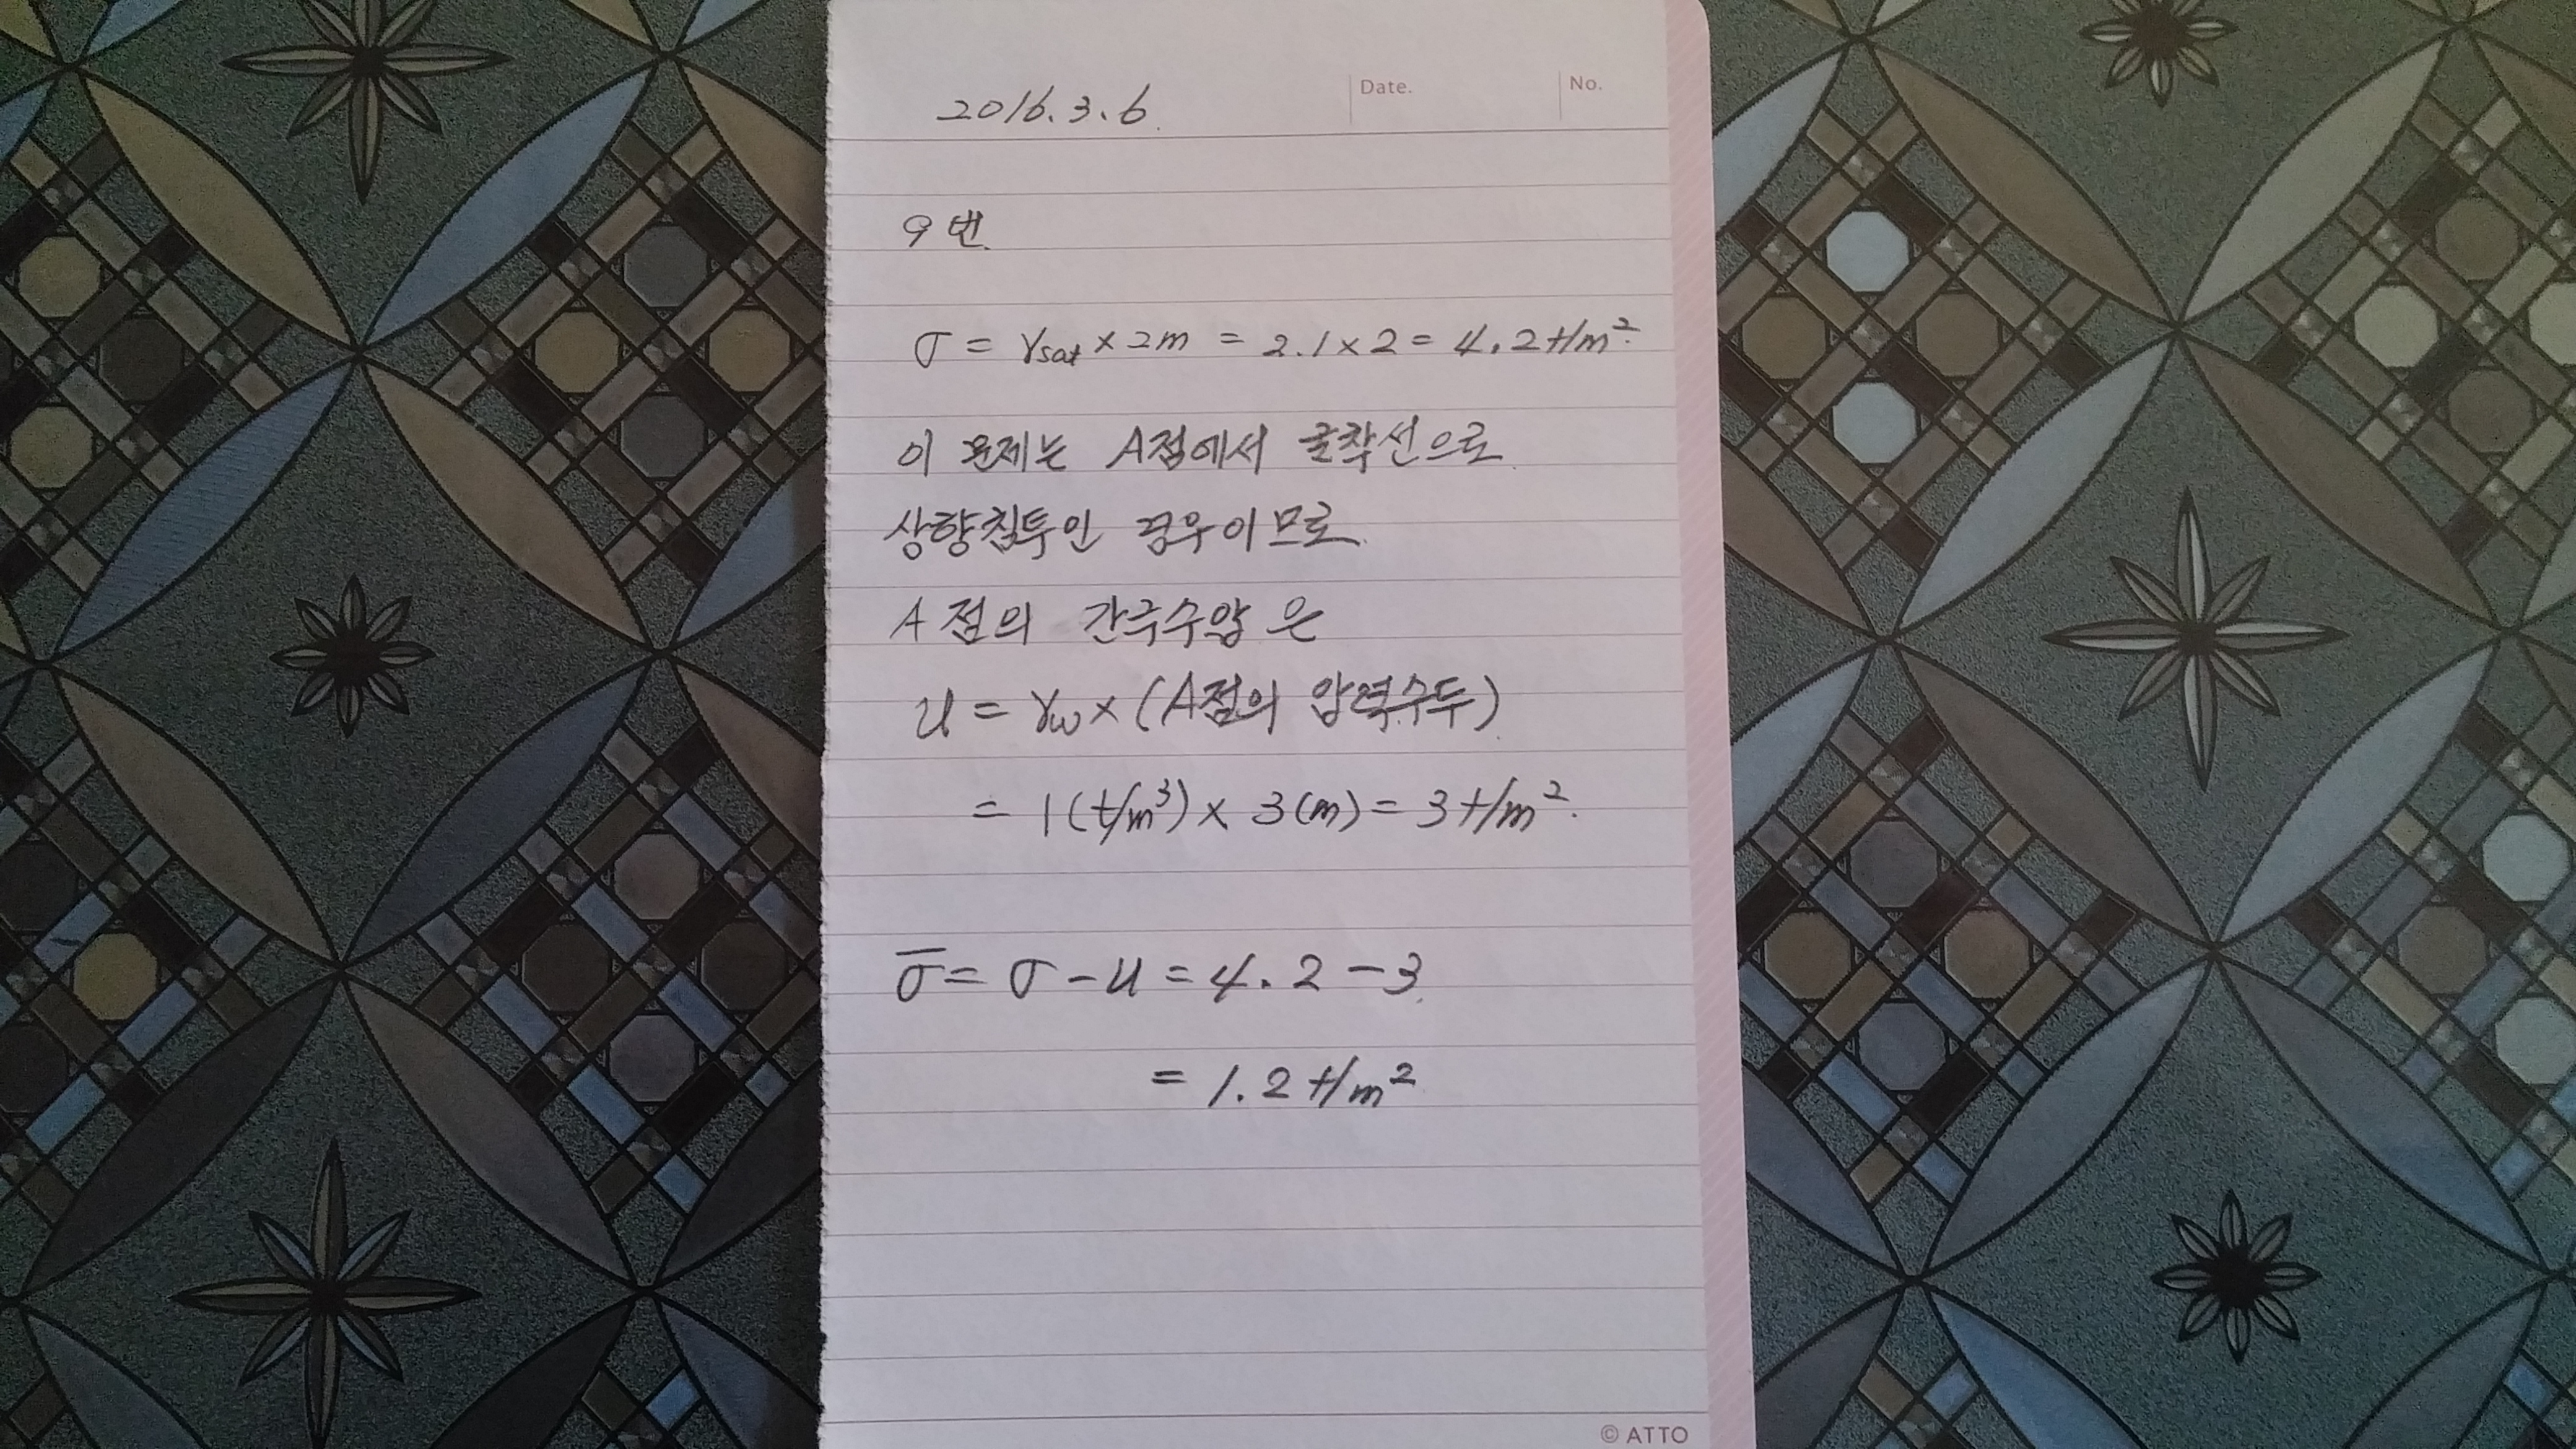 Date.
No.
2016.3.6.
9번.
σ = γsat × 2m = 2.1×2 = 4.2t/m².
이 문제는 A점에서 굴착선으로
상향침투인 경우이므로
A점의 간극수압은
u = γw × (A점의 압력수두)
= 1(t/m³) × 3(m) = 3t/m².
σ̄ = σ - u = 4.2 - 3
= 1.2t/m²
© ATTO